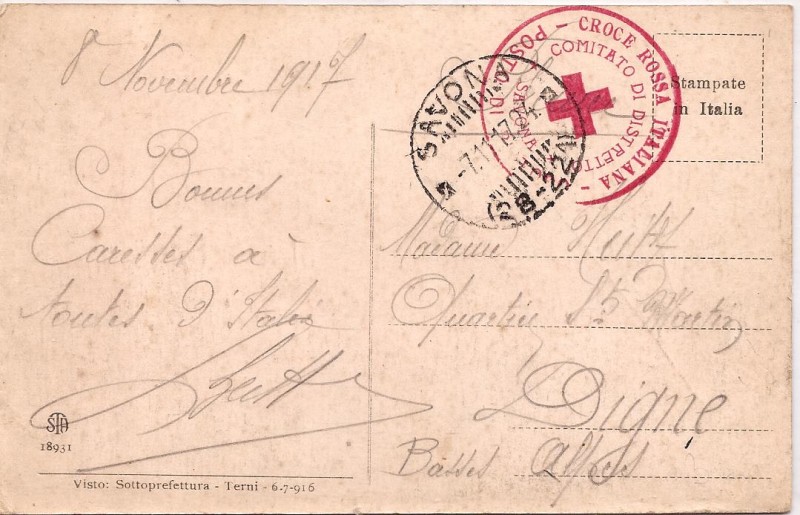 8 Novembre 1917
Bonnes
Caresses à
toutes d'Italie
STA
18931
Visto: Sottoprefettura - Terni - 6.7-916
CROCE ROSSA ITALIANA - POSTO DI
COMITATO DI DISTRETTO
SAVONA
SAVONA
-7.11.17.
18-22
Stampate
in Italia
Madame
Quartier St Martin
Digne
Basses Alpes